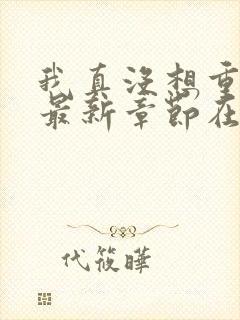 我真没想重
最新章节在
代筱晔